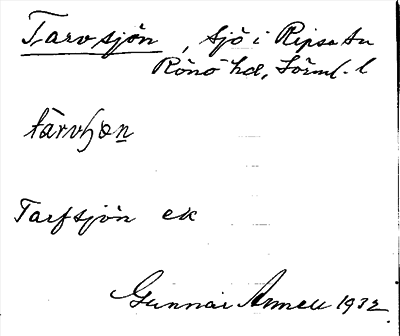 Tarvsjön, Sjö i Ripsa sn
Rönö hd, Sörml. l
tàrvʃɷn
Tarfsjön ek
Gunnar Armell 1932